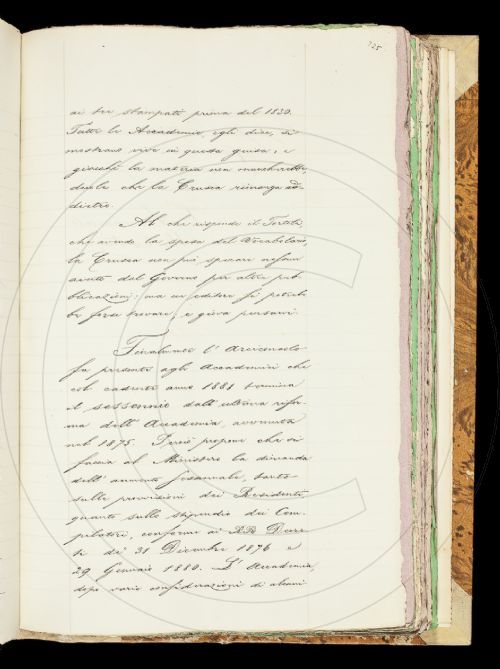 225
ai tre stampati prima del 1830.
Tutte le Accademie, egli dice, si
mostrano vive in questa guisa, e
giacché la materia non mancherebbe,
duole che la Crusca rimanga ad-
dietro.
Al che risponde il Tortoli,
che avendo la spesa del Vocabolario,
la Crusca non può sperare nessun
aiuto dal Governo per altre pub-
blicazioni: ma un editore si potreb-
be forse trovare, e giova pensarvi.
Finalmente l'Arciconsolo
fa presente agli Accademici che
col cadente anno 1881 termina
il sessennio dall'ultima rifor-
ma dell'Accademia, avvenuta
nel 1875. Perciò propone che si
faccia al Ministero la dimanda
dell'aumento sessennale, tanto
sulle provvisioni dei Residenti
quanto sullo stipendio dei Com-
pilatori, conforme ai RR Decre-
ti de' 31 Dicembre 1876 e
29 Gennaio 1880. L'Accademia,
dopo varie considerazioni di alcuni